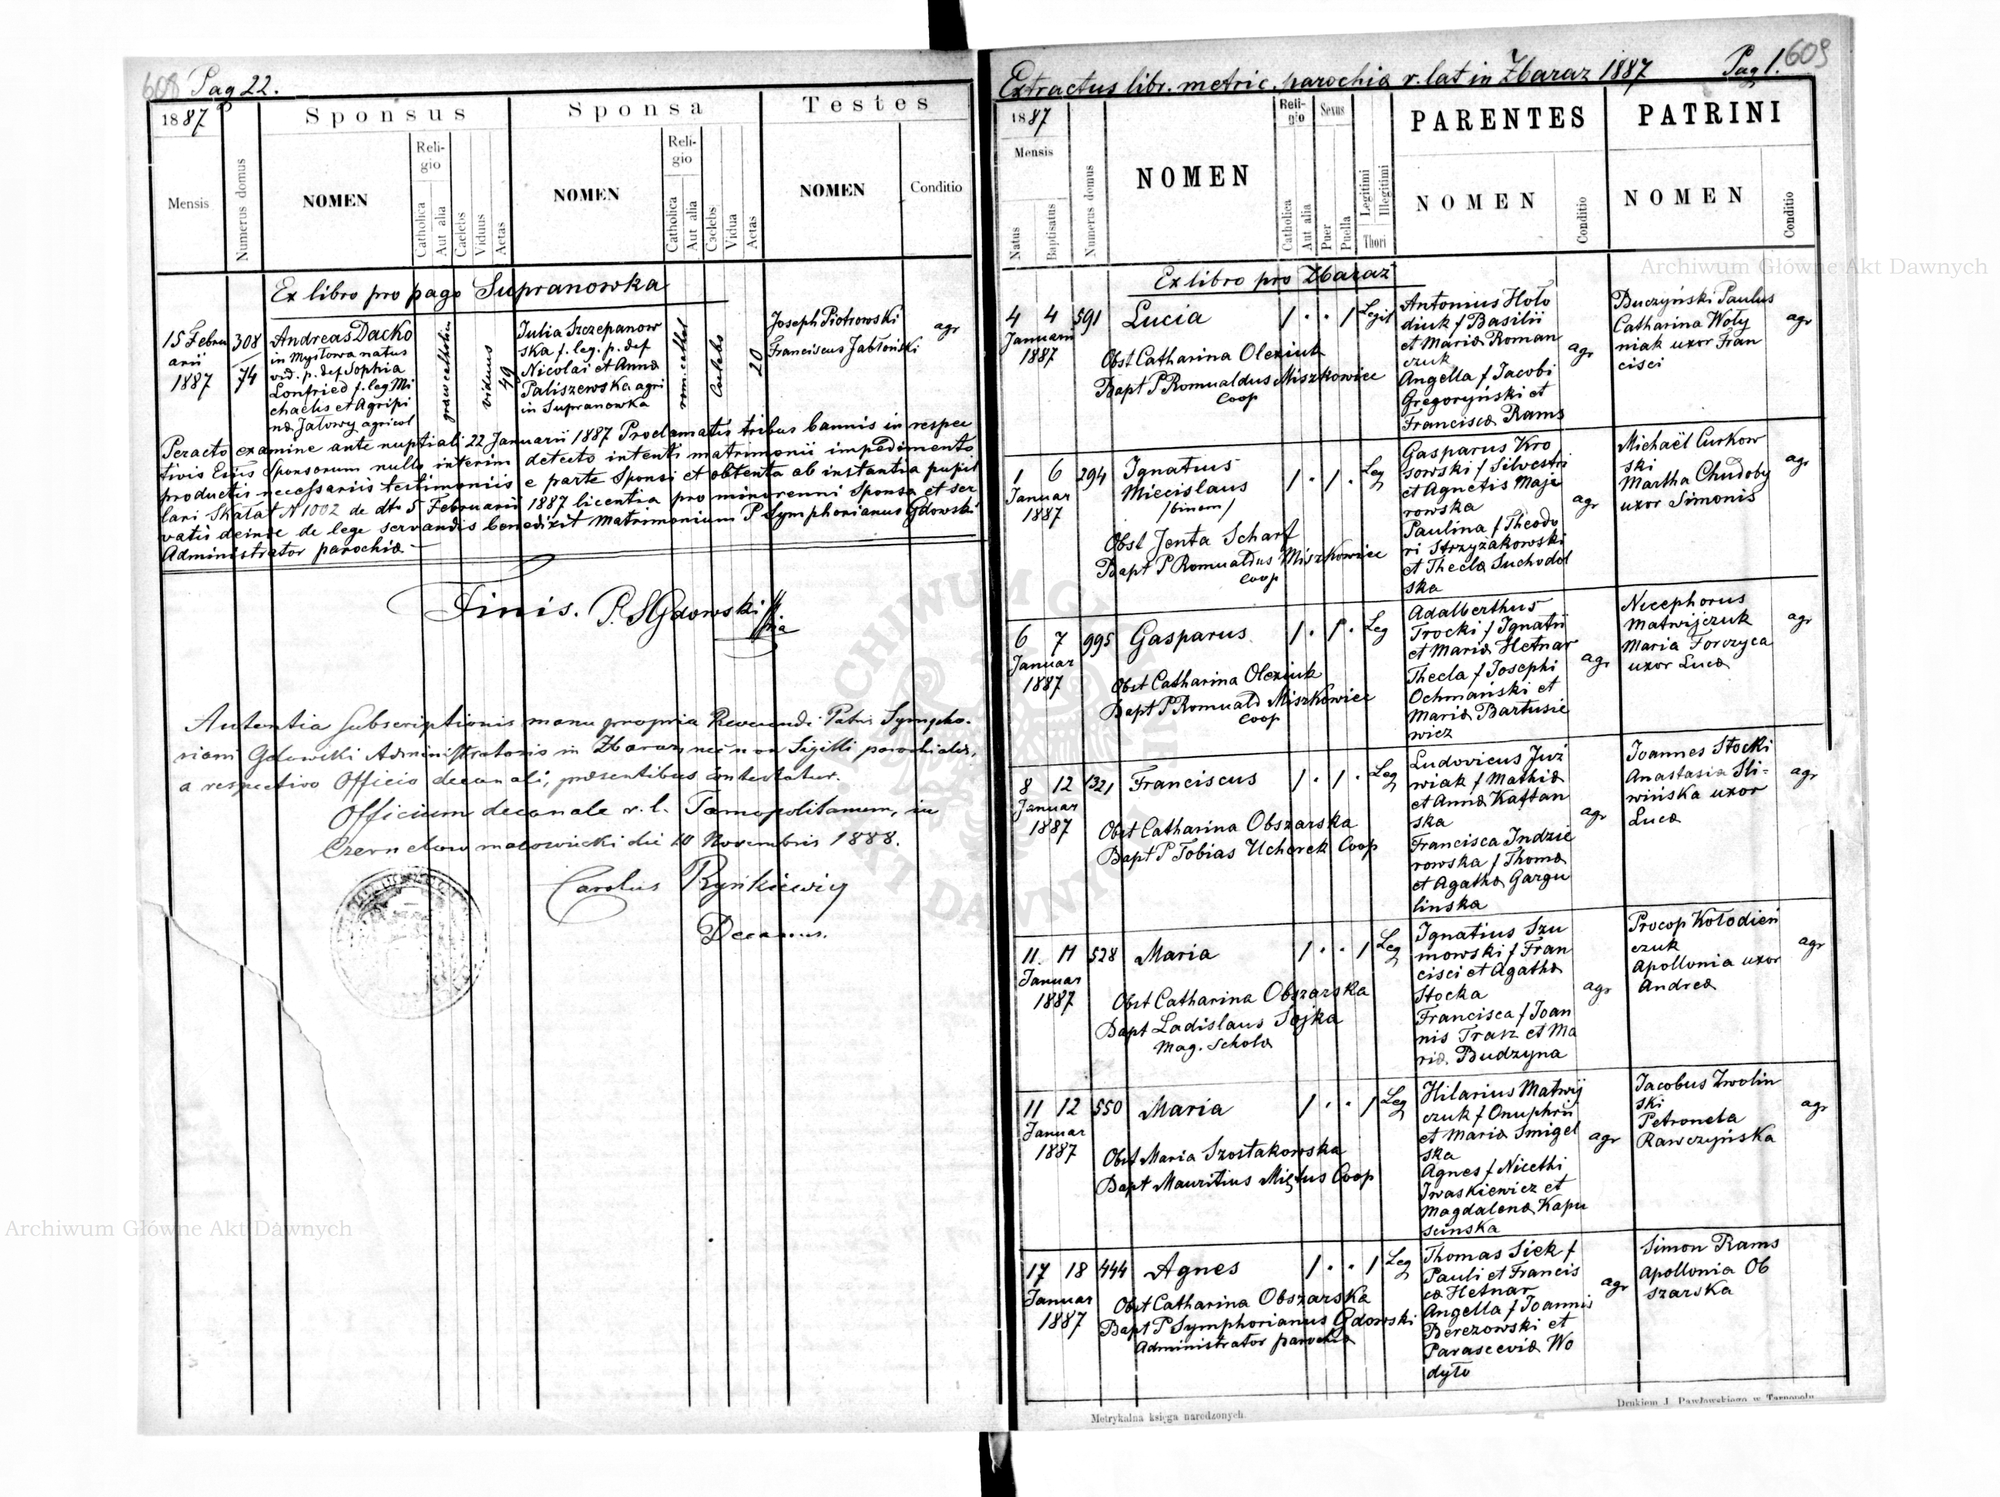 608 Pag 22.
1887
Sponsus
Sponsa
Testes
Mensis
Numerus domus
NOMEN
Religio
Catholica
Aut alia
Caelebs
Viduus
Aetas
NOMEN
Religio
Catholica
Aut alia
Caelebs
Vidua
Aetas
NOMEN
Conditio
Ex libro pro pago Supranowka
15 Febru
arii
1887
308
74
Andreas Dacko
in Mysłowa natus
vid. p. def Sophia
Lonfried f. leg Mi
chaelis et Agripi
na Jałowy agricol
graeco catholicus
viduus
49
Julia Szczepanow
ska f. leg. p. def
Nicolai et Anna
Paliszewska agri
in Supranowka
rom. cathol
Caelebs
20
Joseph Piotrowski
Franciscus Jabłoński
agr
Peracto examine ante nuptiali 22 Januarii 1887 Proclamatis tribus bannis in respec
tivis Eccis Sponsorum nullo interim detecto intenti matrimonii impedimento
productis necessariis testimoniis e parte Sponsi et obtenta ab instantia pupil
lari Skałat N 1002 de dto 5 Februarii 1887 licentia pro minorenni Sponsa et ser
vatis deinde de lege servandis benedixit matrimonium P Symphorianus Gdowski
Administrator parochiæ
Finis. P. S Gdowski
mpia
Autentia Subscriptionis manu propria Reverendi Patris Sympho-
riani Gdowski Administratoris in Zbaraz nec non Sigilli parochialis,
a respectivo Officio decanali, præsentibus contestatur.
Officium decanale r. l. Tarnopolitanum, in
Czernelow mazowiecki die 10 Novembris 1888.
Carolus Rynkiewicz
Decanus.
Extractus libr. metric. parochiæ r. lat in Zbaraz 1887 Pag 1. 609
1887
Mensis
Natus
Baptisatus
Numerus domus
NOMEN
Religio
Catholica
Aut alia
Sexus
Puer
Puella
Legitimi
Illegitimi
Thori
PARENTES
NOMEN
Conditio
PATRINI
NOMEN
Conditio
Ex libro pro Zbaraz
4 4 591 Lucia 1 . . 1 Legit
Januarii
1887
Obst Catharina Olexiuk
Bapt P Romualdus Miszkowiec
Coop
Antonius Hoło
diuk f Basilii
et Mariæ Roman
czuk
Angella f Jacobi
Gregoryński et
Franciscæ Rams
agr
Buczyński Paulus
Catharina Woły
niak uxor Fran
cisci
agr
1 6 294 Ignatius 1 . 1 . Leg
Januar
1887
Miecislaus
/binom/
Obst Jenta Scharf
Bapt P Romualdus Miszkowiec
Coop
Gasparus Kro
sowski f Silvestri
et Agnetis Maje
rowska
Paulina f Theodo
ri Strzyżakowski
et Theclæ Suchodol
ska
agr
Michaël Curkow
ski
Martha Chudoby
uxor Simonis
agr
6 7 995 Gasparus 1 . 1 . Leg
Januar
1887
Obst Catharina Olexiuk
Bapt P Romuald Miszkowiec
Coop
Adalberthus
Trocki f Ignatii
et Mariæ Hetnar
Thecla f Josephi
Ochmański et
Mariæ Bartusie
wicz
agr
Nicephorus
Matwijczuk
Maria Forczyca
uxor Lucæ
agr
8 12 1321 Franciscus 1 . 1 . Leg
Januar
1887
Obst Catharina Obszarska
Bapt P Tobias Ucherek Coop
Ludovicus Juz
wiak f Mathiæ
et Annæ Kaftan
ska
Francisca Indzie
rowska f Thomæ
et Agathæ Gargu
linska
agr
Joannes Stocki
Anastasia Sli-
wińska uxor
Lucæ
agr
11. 11 528 Maria 1 . . 1 Leg
Januar
1887
Obst Catharina Obszarska
Bapt Ladislaus Sojka
Mag. Scholæ
Ignatius Szu
mowski f Fran
cisci et Agathæ
Stocka
Francisca f Joan
nis Tracz et Ma
riæ Budzyna
agr
Procop Kołodień
czuk
Apollonia uxor
Andreæ
agr
11 12 550 Maria 1 . . 1 Leg
Januar
1887
Obst Maria Szostakowska
Bapt Mauritius Miętus Coop
Hilarius Matwij
czuk f Onuphrii
et Mariæ Smigel
ska
Agnes f Nicethi
Iwaskiewicz et
Magdalenæ Kapu
scinska
agr
Jacobus Zwolin
ski
Petronela
Rawczyńska
agr
17 18 444 Agnes 1 . . 1 Leg
Januar
1887
Obst Catharina Obszarska
Bapt P Symphorianus Gdowski
Administrator parochiæ
Thomas Siek f
Pauli et Francis
cæ Hetnar
Angella f Joannis
Berezowski et
Parasceviæ Wo
dyło
agr
Simon Rams
Apollonia Ob
szarska
Metrykalna księga narodzonych.
Drukiem J. Pawłowskiego w Tarnopolu
Archiwum Główne Akt Dawnych
Archiwum Główne Akt Dawnych
ARCHIWUM GŁÓWNE AKT DAWNYCH